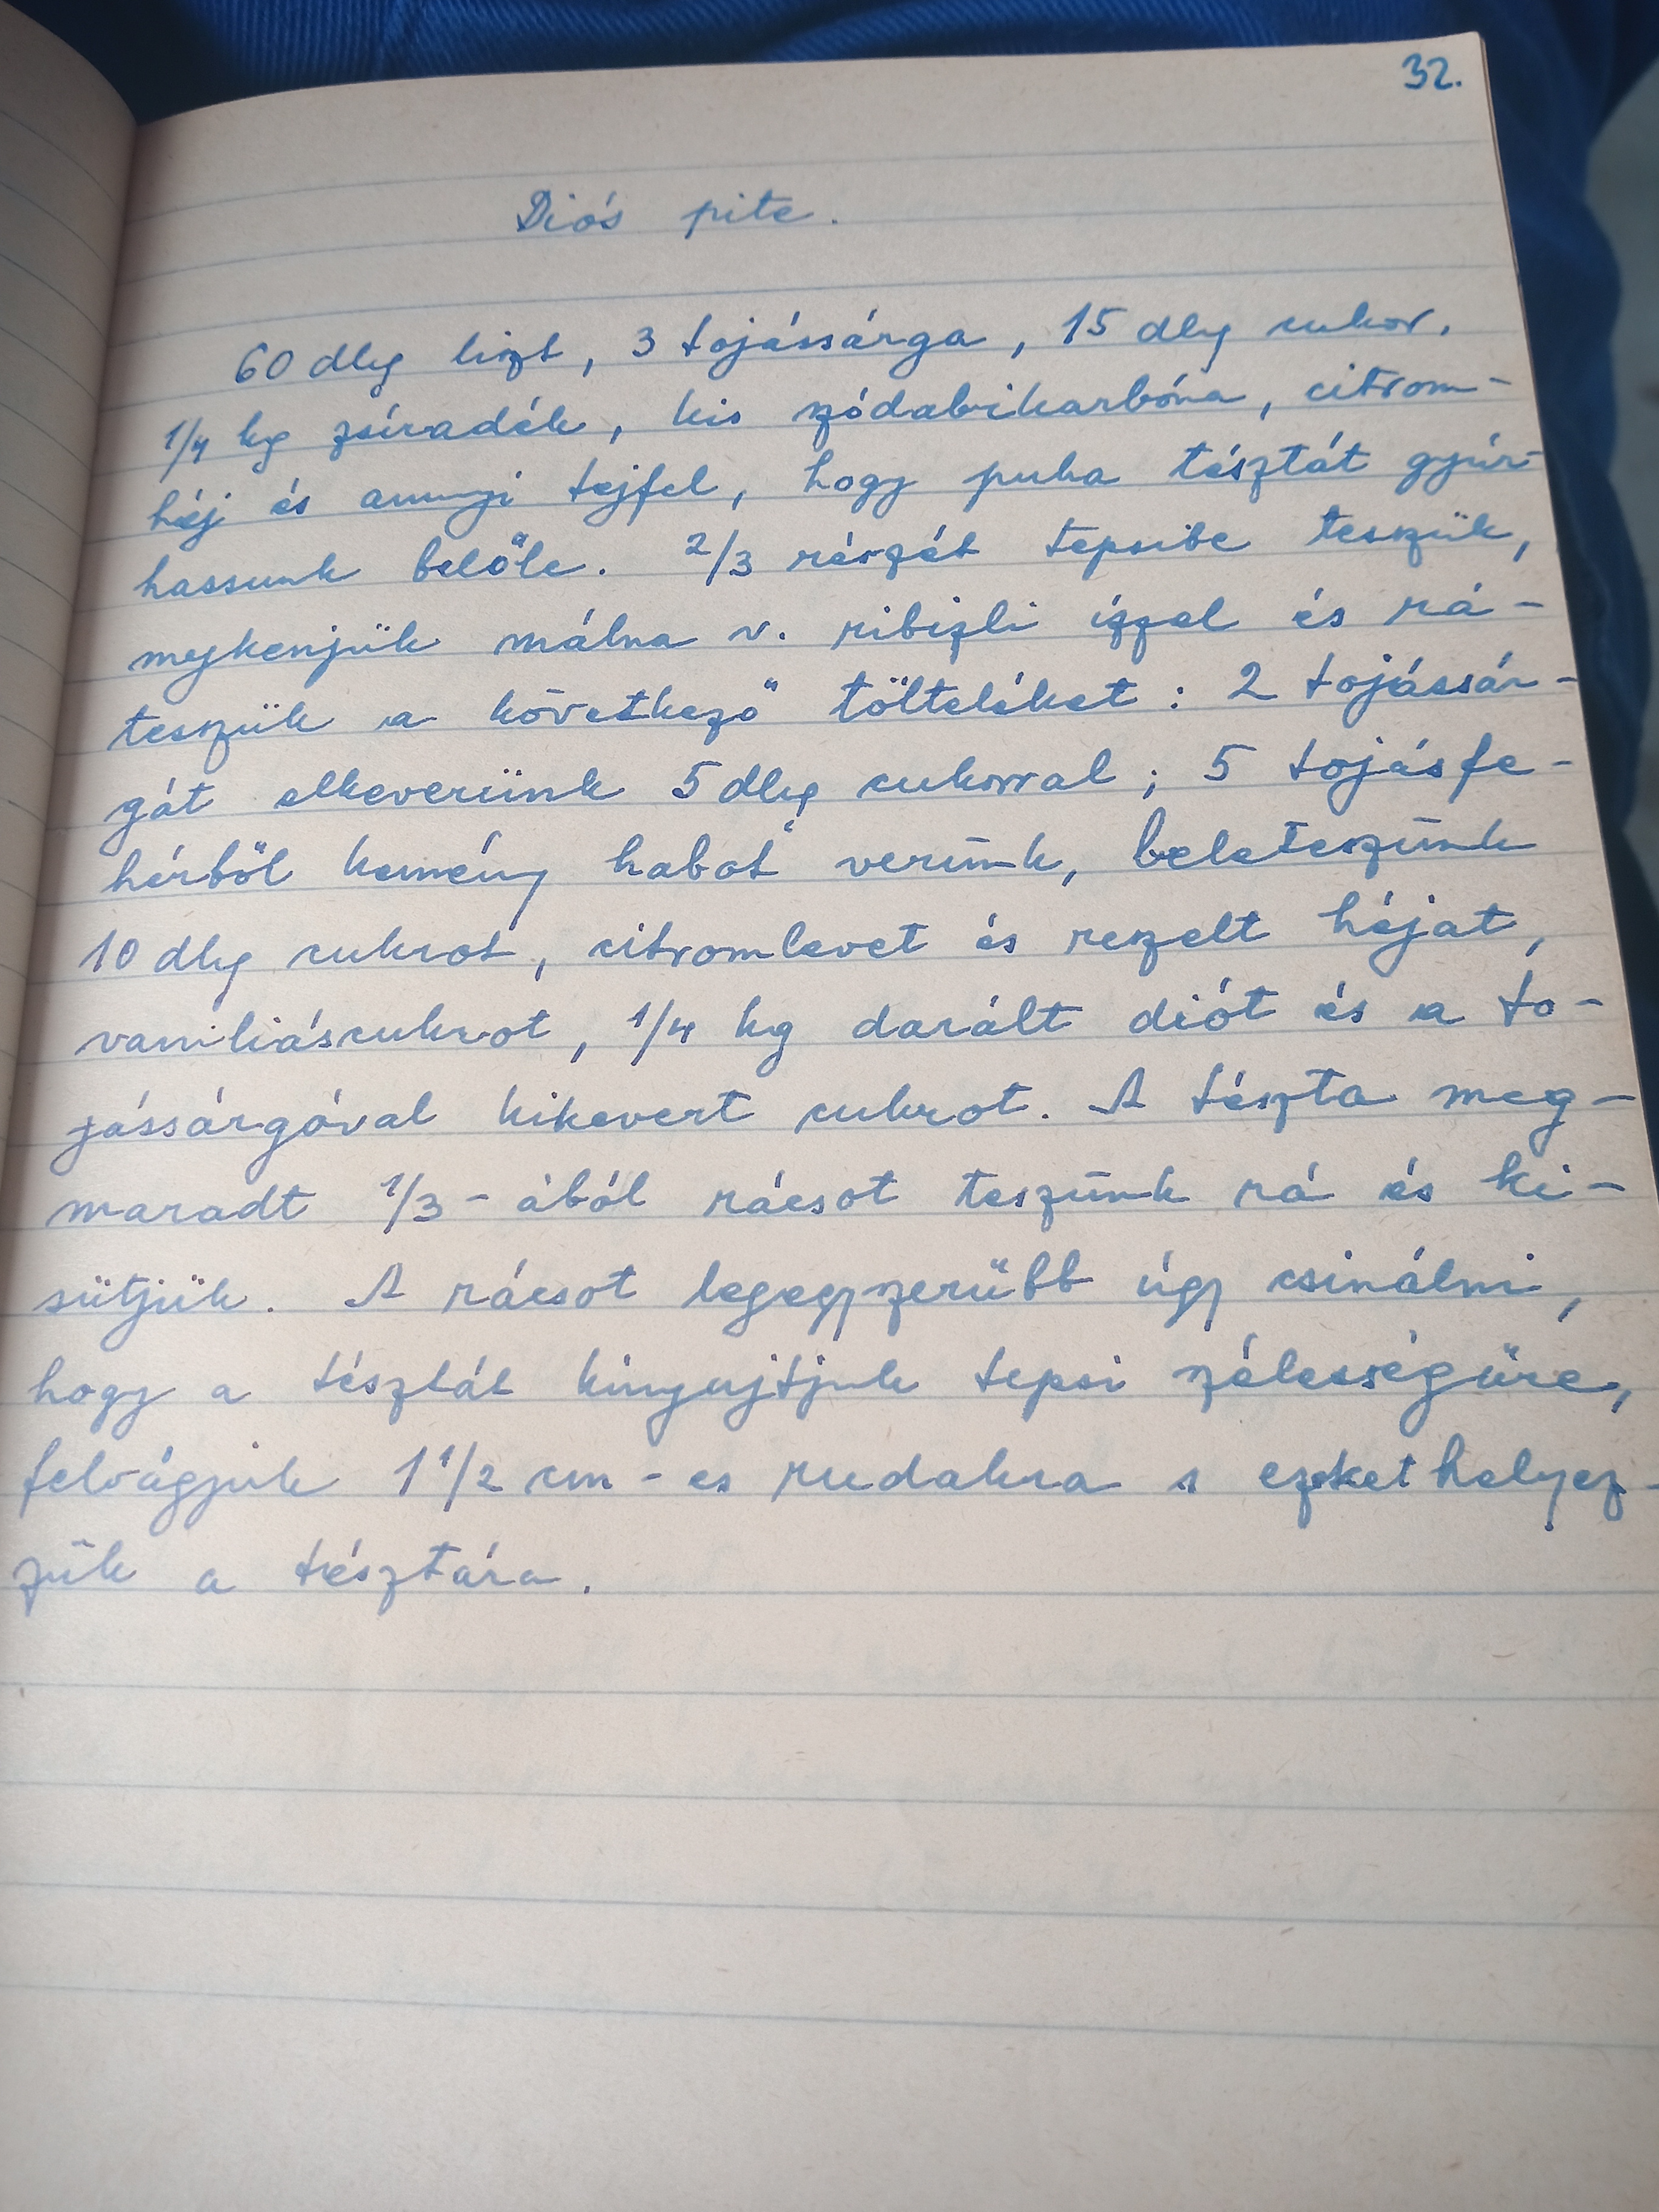 32.
Diós pite.
60 dkg liszt, 3 tojássárga, 15 dkg cukor,
1/4 kg zsiradék, kis szódabikarbóna, citrom-
héj és annyi tejfel, hogy puha tésztát gyúr-
hassunk belőle. 2/3 részét tepsibe teszük,
megkenjük málna v. ribizli ízzel és rá-
teszük a következő tölteléket: 2 tojássár-
gát elkeverünk 5 dkg cukorral; 5 tojásfe-
hérből kemény habot verünk, beleteszünk
10 dkg cukrot, citromlevet és reszelt héjat,
vaniliáscukrot, 1/4 kg darált diót és a to-
jássárgával kikevert cukrot. A tészta meg-
maradt 1/3-ából rácsot teszünk rá és ki-
sütjük. A rácsot legegyszerűbb úgy csinálni,
hogy a tésztát kinyujtjuk tepsi szélességűre,
felvágjuk 1 1/2 cm-es rudakra s ezeket helyez-
zük a tésztára.